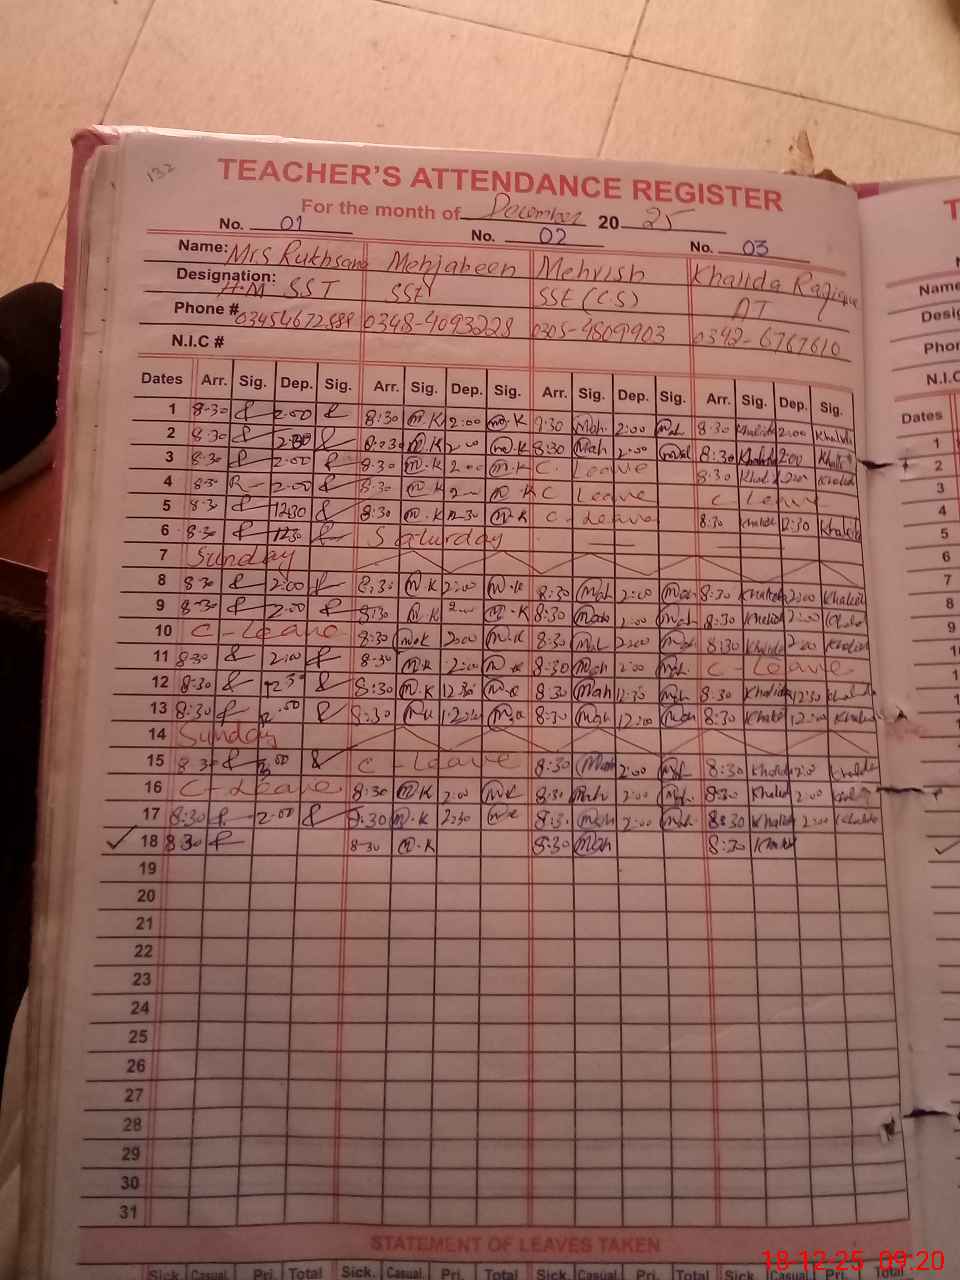 132
TEACHER'S ATTENDANCE REGISTER
For the month of December 2025
No. 01 No. 02 No. 03
Name: Mrs Rukhsana Mehjabeen Mehvish Khalida Rafique
Designation: H.M SST SSE SSE (C.S) AT
Phone # 03454672888 0348-4093228 0305-4809903 0342-6767610
N.I.C #
Dates Arr. Sig. Dep. Sig. Arr. Sig. Dep. Sig. Arr. Sig. Dep. Sig. Arr. Sig. Dep. Sig.
1 8:30 2:00 8:30 M.K 2:00 M.K 8:30 Mah 2:00 Mah 8:30 Khalida 2:00 Khalida
2 8:30 2:00 8:30 M.K 2:00 M.K 8:30 Mah 2:00 Mah 8:30 Khalida 2:00 Khalida
3 8:30 2:00 8:30 M.K 2:00 M.K C. Leave 8:30 Khalid 2:00 Khalida
4 8:30 2:00 8:30 M.K 2:00 M.K C Leave C Leave
5 8:30 12:30 8:30 M.K 12:30 M.K C-Leave 8:30 Khalida 12:30 Khalida
6 8:30 12:30 Saturday
7 Sunday
8 8:30 2:00 8:30 M.K 2:00 M.K 8:30 Mah 2:00 Mah 8:30 Khalida 2:00 Khalid
9 8:30 2:00 8:30 M.K 2:00 M.K 8:30 Mah 2:00 Mah 8:30 Khalid 2:00 Khalid
10 C-Leave 8:30 M.K 2:00 M.K 8:30 Mah 2:00 Mah 8:30 Khalida 2:00 Khalida
11 8:30 2:00 8:30 M.K 2:00 M.K 8:30 Mah 2:00 Mah C-Leave
12 8:30 12:30 8:30 M.K 12:30 M.K 8:30 Mah 12:30 Mah 8:30 Khalida 12:30 Khalida
13 8:30 12:00 8:30 M.K 12:00 M.K 8:30 Mah 12:00 Mah 8:30 Khalid 12:00 Khalida
14 Sunday
15 8:30 C-Leave 8:30 Mah 2:00 Mah 8:30 Khalida 2:00 Khalida
16 C-Leave 8:30 M.K 2:00 M.K 8:30 Mah 2:00 Mah 8:30 Khalid 2:00
17 8:30 2:00 8:30 M.K 2:30 M.K 8:30 Mah 2:00 Mah 8:30 Khalid 2:00 Khalida
18 8:30 8:30 M.K 8:30 Mah 8:30 Khalid
19
20
21
22
23
24
25
26
27
28
29
30
31
STATEMENT OF LEAVES TAKEN
Sick Casual Pri. Total Sick. Casual. Pri. Total Sick. Casual Pri. Total Sick. Casual. Pri. Total
Name
Phon
N.I.C
Dates
1
2
3
4
5
6
7
8
9
18-12-25 09:20